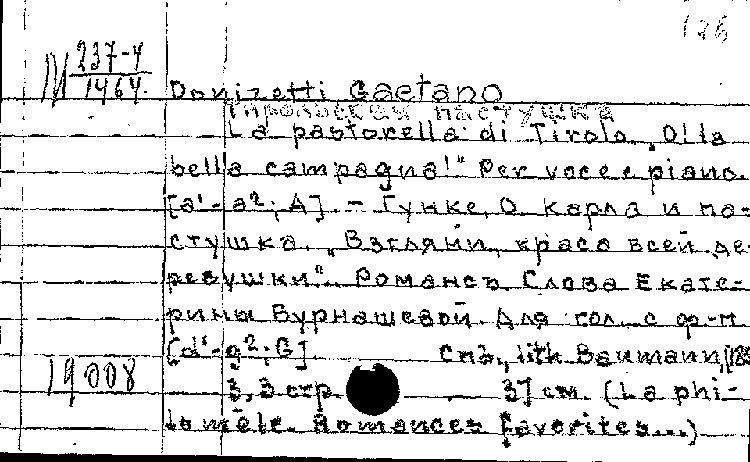 126
М 237-4
1464.
Donizetti Gaetano
Тирольская пастушка
La pastorella di Tirolo, "O lla
bella campagna!" Per voce e piano.
[a¹-a²; A]. - Гунке, О. Карла и па-
стушка. "Взгляни, краса всей де-
ревушки". Романсъ Слова Екате-
рины Бурнашевой. Для гол. с ф-п.
[d¹-g²; G] спъ., lith. Baumann,
19008
3, 3 стр. 37 см. (La phi-
lomèle. Romances favorites...)